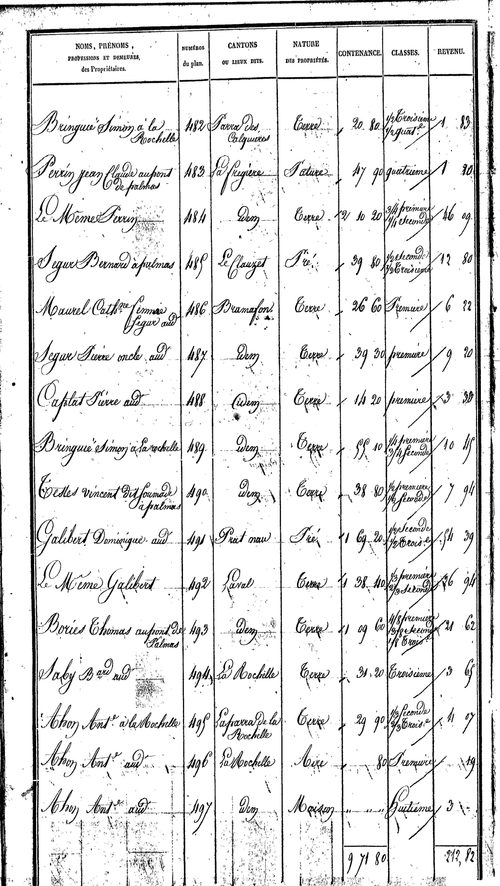 NOMS, PRÉNOMS, PROFESSIONS ET DEMEURES, des Propriétaires. NUMÉROS du plan. CANTONS OU LIEUX DITS. NATURE DES PROPRIÉTÉS. CONTENANCE. CLASSES. REVENU.
Bringuié Simon à la Rochelle 482 Parra des Calquieres Terre 20 80 1/2 Troisieme 1/2 quat.e 1 83
Perrin jean Claude au pont de palmas 483 La fregiere Pature 47 90 quatrieme 1 80
Le Même Perrin 484 idem Terre 2 10 20 3/4 premiere 1/4 Seconde 46 09
Segur Bernard à palmas 485 Le Clauzet Pré 39 80 1/2 Seconde 1/2 Troisieme 12 80
Maurel Cath.ne femme Segur aud 486 Bramafon Terre 26 60 Premiere 6 22
Segur Pierre oncle aud 487 idem Terre 39 30 premiere 9 20
Caplat Pierre aud 488 idem Terre 14 20 premiere 3 32
Bringuié Simon à La rochelle 489 idem Terre 55 10 1/4 premiere 3/4 Seconde 10 45
Testes vincent dit à palmas 490 idem Terre 38 80 premiere Seconde 7 94
Galibert Dominique aud 491 Prat nau Pré 1 69 20 1/2 Seconde 1/2 Trois.e 54 39
Le Même Galibert 492 Laval Terre 1 38 40 1/3 premiere 2/3 Seconde 26 94
Bories Thomas au pont de Palmas 493 idem Terre 1 09 60 premiere Seconde 1/8 Trois.e 21 62
Saby B.ard aud 494 La Rochelle Terre 31 20 Troisieme 3 65
Ahon Ant.e à la Rochelle 495 La parra de la Rochelle Terre 29 90 1/3 Seconde 2/3 Trois.e 4 07
Ahon Ant.e aud 496 La Rochelle Aire 80 Premiere 19
Ahon Ant.e aud 497 idem Maison " " " huitieme 3
9 71 80 212, 82